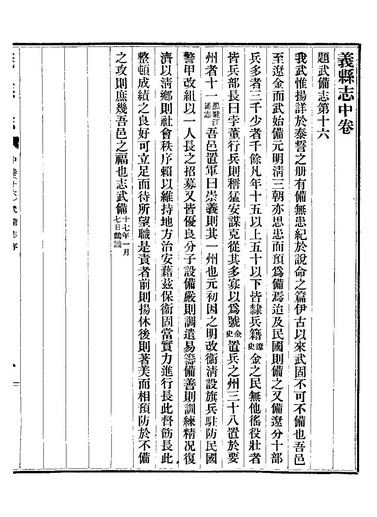 義縣志中卷
題武備志第十六
我武惟揚詳於泰誓之册有備無患紀於說命之篇伊古以來武固不可不備也吾邑
至遼金而武始備元明清三朝亦思患而預爲備焉迨及民國則備之又備遼分十部
兵多者三千少者千餘凡年十五以上五十以下皆隸兵籍遼史金之民無他徭役壯者
皆兵部長曰孛菫行兵則稱猛安謀克從其多寡以爲號金史置兵之州三十八置於要
州者十一黑龍江通志吾邑置軍曰崇義則其一州也元初因之明改衞淸設旗兵駐防民國
警甲改組以一人長之招募又皆優良分子設備嚴則調遣易籌備善則訓練精况復
濟以清鄉則社會秩序賴以維持地方治安藉茲保衞固當實力進行長此督筋長此
整頓成績之良好可立足而待所望職是責者前則揚休後則著美而相預防於不備
之攻則庶幾吾邑之福也志武備十七年一月七日